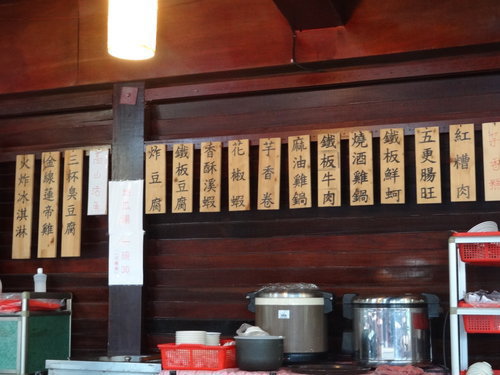 火炸冰淇淋
金線蓮帝雞
三杯臭豆腐
炸豆腐
鐵板豆腐
香酥溪蝦
花椒蝦
芋香卷
麻油雞鍋
鐵板牛肉
燒酒雞鍋
鐵板鮮蚵
五更腸旺
紅糟肉